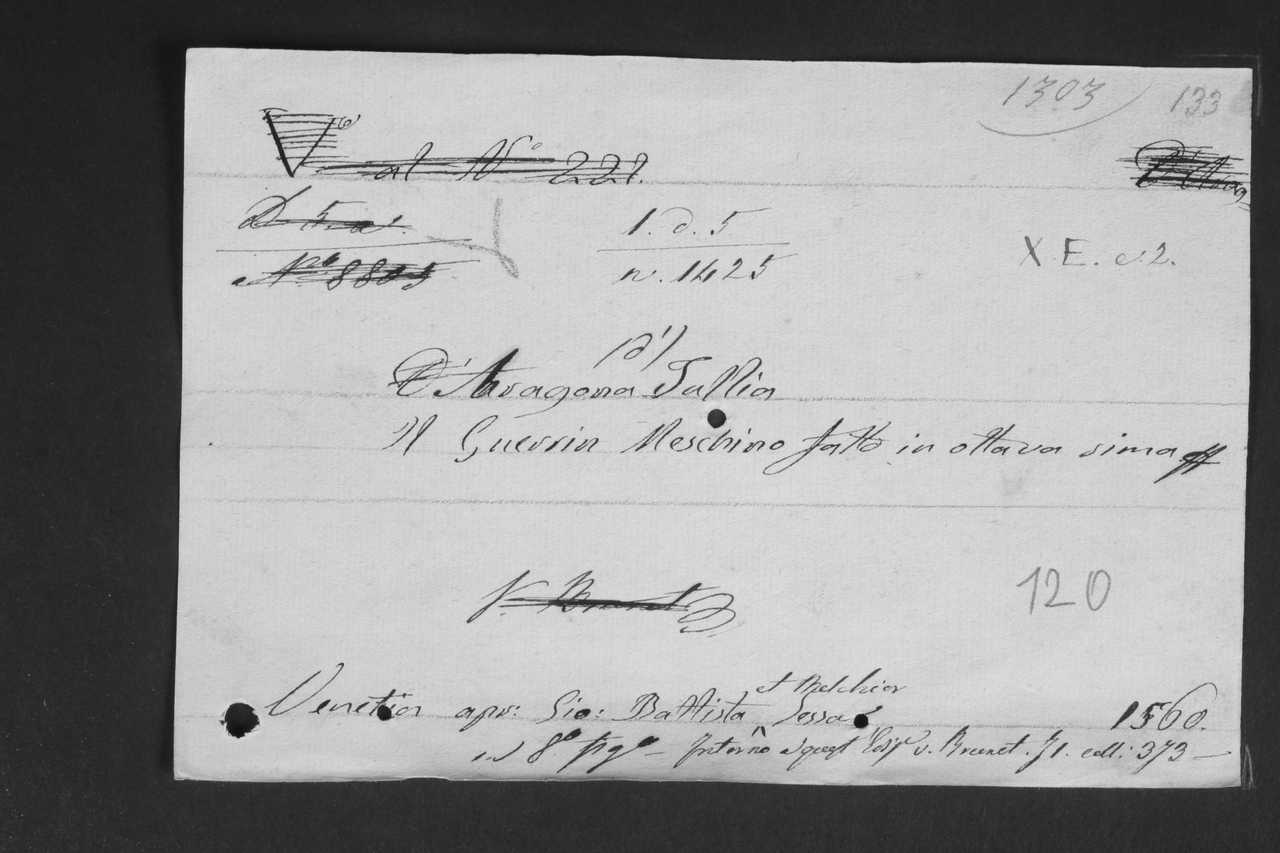 1303 133
V.º al Nº 221.
D. 5. a.
1. d. 5
Nº 8805
n. 1425
X. E. c. 2.
(d')
D'Aragona Tullia
Il Guerrin Meschino fatto in ottava rima
V. Brunet
120
et Melchior
Venetia apr: Gio: Battista Sessa 1560.
in 8º fig.º Intorno v. Brunet. I. coll: 373